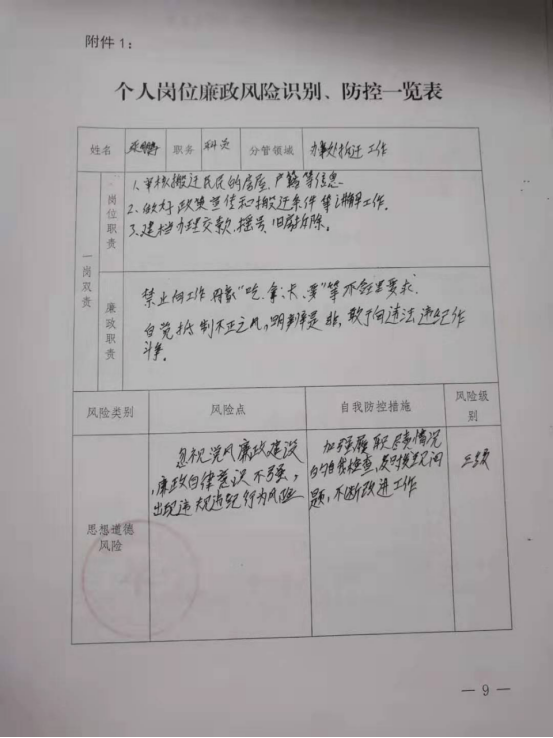 附件1：
个人岗位廉政风险识别、防控一览表
姓名
职务 科员 分管领域 拆迁工作
一岗双责
岗位职责
1、审核搬迁居民的房屋、户籍等信息
2、做好政策宣传和搬迁条件等讲解工作。
3、建档办理交款、摇号、旧房拆除。
廉政职责
禁止向工作对象“吃、拿、卡、要”等不合理要求。
自觉抵制不正之风，明辨是非，敢于向违法违纪作
斗争。
风险类别 风险点 自我防控措施 风险级别
思想道德
风险
忽视党风廉政建设
，廉政自律意识不强，
出现违规违纪行为风险
加强履职尽责情况
的自我检查，及时发现问
题，不断改进工作
三级
— 9 —